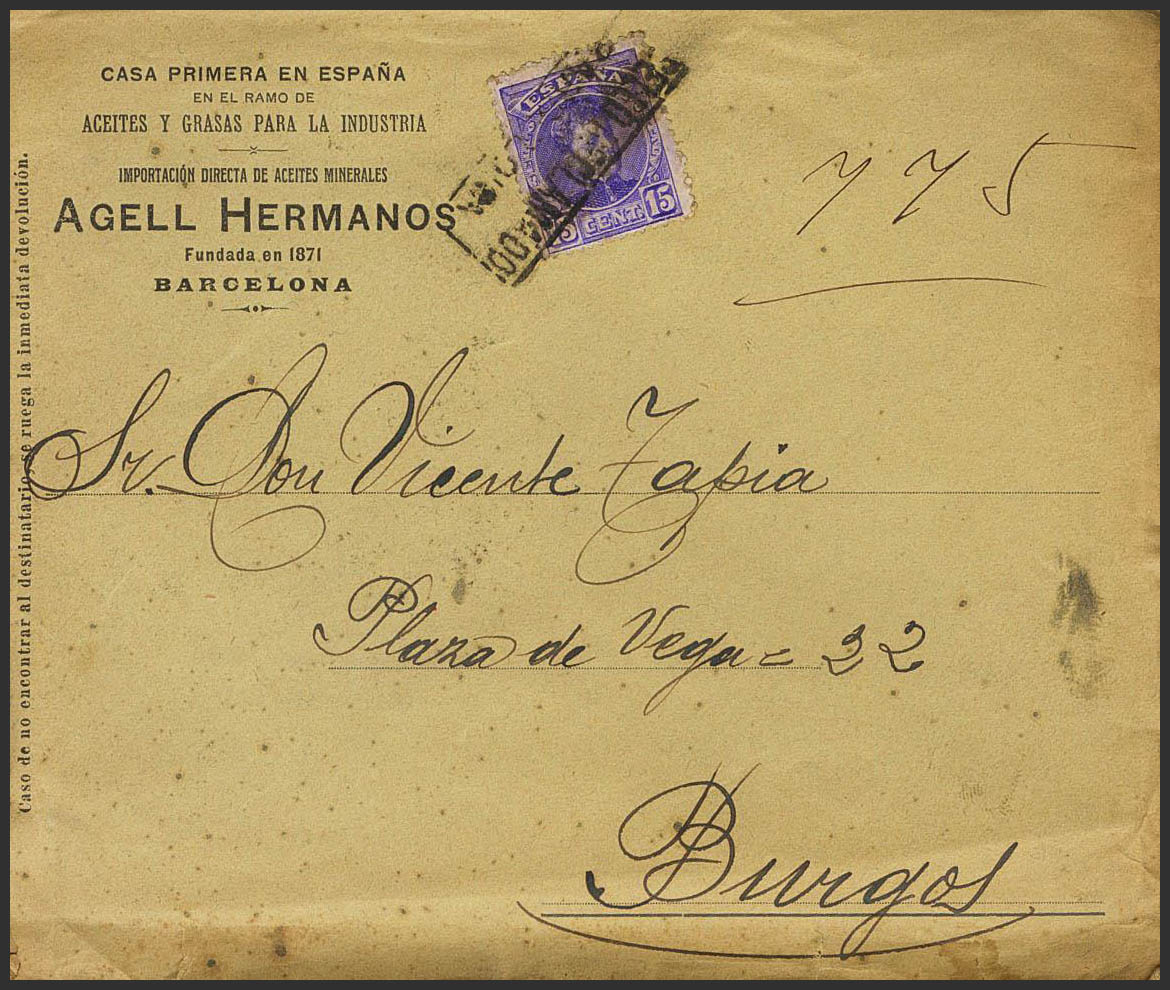 CASA PRIMERA EN ESPAÑA
EN EL RAMO DE
ACEITES Y GRASAS PARA LA INDUSTRIA
IMPORTACIÓN DIRECTA DE ACEITES MINERALES
AGELL HERMANOS
Fundada en 1871
BARCELONA
ESPAÑA
15 CENT 15
775
Sr. Don Vicente Tapia
Plaza de Vega = 32
Burgos
Caso de no encontrar al destinatario, se ruega la inmediata devolución.